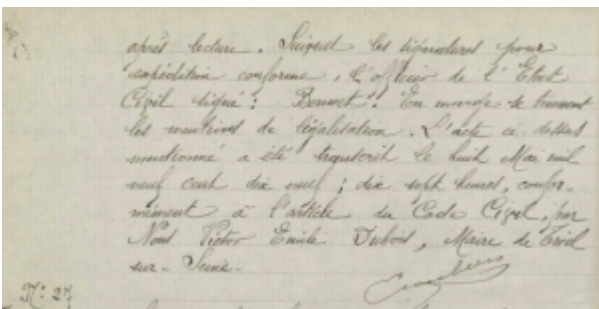 après lecture. Suivent les signatures pour
expédition conforme, l'officier de l'Etat
Civil signé: Bonnet. En marge se trouvent
les mentions de légalisation. L'acte ci-dessus
mentionné a été transcrit le huit Mai mil
neuf cent dix neuf; dix sept heures, confor-
mément à l'article du Code Civil, par
Nous Victor Emile Dubois, Maire de Triel
sur-Seine.
N° 27